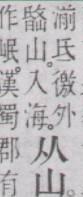 湔氐徼外
𡺲山入海从山
作岷漢蜀郡有